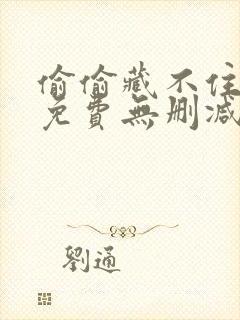 偷偷藏不住
免費無刪減
劉通